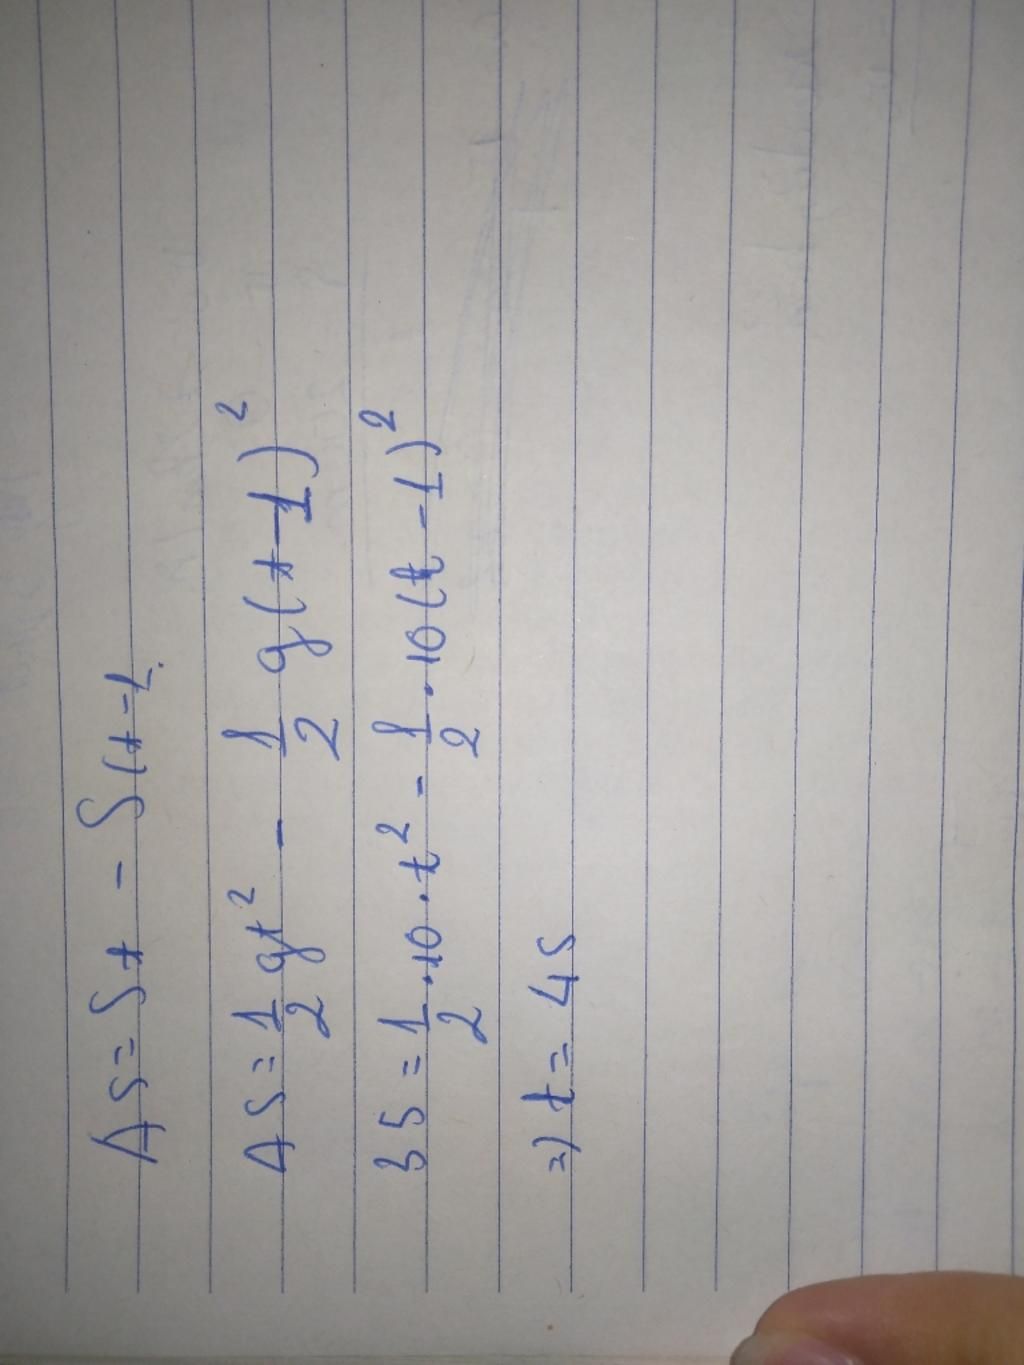 ΔS = St - S(t-1.
ΔS = 1/2 gt² - 1/2 g(t-1)²
35 = 1/2 .10.t² - 1/2 .10(t-1)²
=) t = 4s